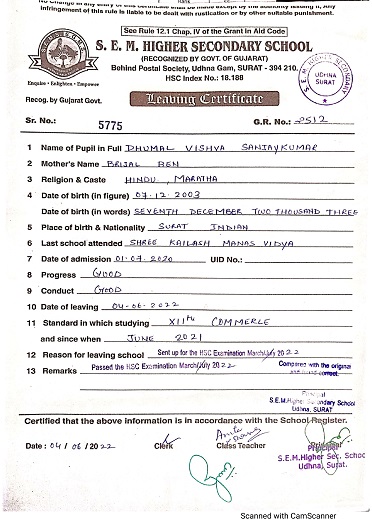 No change in any entry in this certificate shall be made except by the authority issuing it, Any
infringement of this rule is liable to be dealt with rustication or by other suitable punishment.
See Rule 12.1 Chap. IV of the Grant in Aid Code
S. E. M. HIGHER SECONDARY SCHOOL
(RECOGNIZED BY GOVT. OF GUJARAT)
Behind Postal Society, Udhna Gam, SURAT - 394 210.
HSC Index No.: 18.188
Enquire • Enlighten • Empower
S. E. M. HIGHER SECONDARY
UDHNA
SURAT
Recog. by Gujarat Govt.
Leaving Certificate
Sr. No.: 5775
G.R. No.: 2512
1 Name of Pupil in Full DHUMAL VISHVA SANJAYKUMAR
2 Mother's Name BRIJAL BEN
3 Religion & Caste HINDU, MARATHA
4 Date of birth (in figure) 07.12.2003
Date of birth (in words) SEVENTH DECEMBER TWO THOUSAND THREE
5 Place of birth & Nationality SURAT INDIAN
6 Last school attended SHREE KAILASH MANAS VIDYA
7 Date of admission 01.07.2020 UID No.:
8 Progress GOOD
9 Conduct GOOD
10 Date of leaving 04-06-2022
11 Standard in which studying XIIth COMMERCE
and since when JUNE 2021
12 Reason for leaving school Sent up for the HSC Examination March/July 2022
13 Remarks Passed the HSC Examination March/July 2022
Compared with the original
and found correct.
Principal
S.E.M.Higher Secondary School
Udhna, SURAT
Certified that the above information is in accordance with the School Register.
Date : 04/06/2022
Clerk
Class Teacher
Principal
Principal
S.E.M.Higher Sec. School
Udhna, Surat.
Scanned with CamScanner